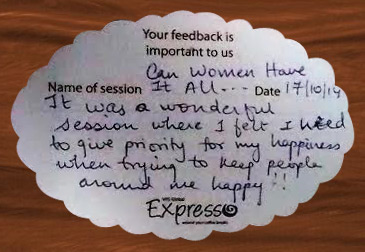 Your feedback is
important to us
Can Women Have
Name of session It All--- Date 17/10/14
It was a wonderful
session where I felt I need
to give priority for my happiness
when trying to keep people
around me happy!!
Expresso